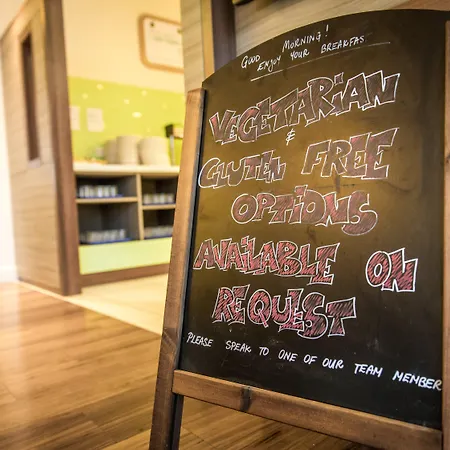 GOOD MORNING!
ENJOY YOUR BREAKFAS
VEGETARIAN
&
GLUTEN FREE
OPTIONS
AVAILABLE ON
REQUEST
PLEASE SPEAK TO ONE OF OUR TEAM MENBER